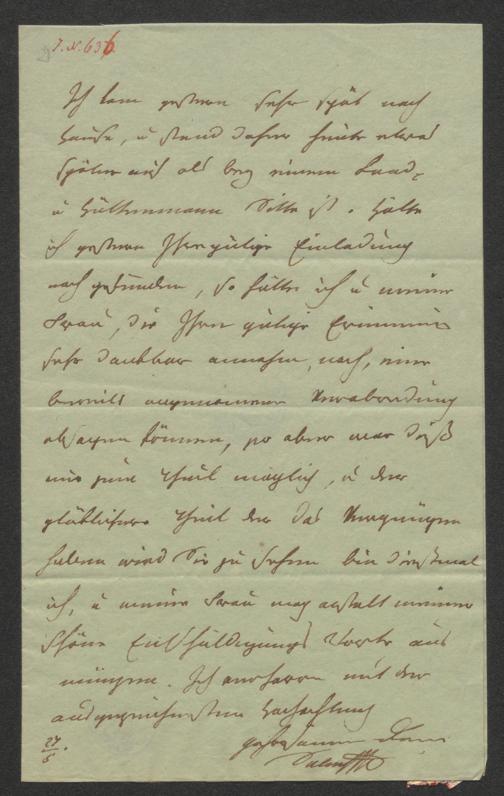 J. N. 636.
Ich kam gestern sehr spät nach
Hause, u stand daher heute etwas
später auf als bey einem Land-
u Hüttenmann Sitte ist. Hätte
ich gestern Ihre gütige Einladung
noch gefunden, so hätte ich u meine
Frau, die Ihre gütige
sehr dankbar annehm, noch, eine
bereits angenommene Verabredung
absagen können, so aber war dieß
mir zum Theil möglich, u der
glücklichere Theil der das Vergnügen
haben wird Sie zu sehen bin dießmal
ich, u meine Frau mag anstatt meiner
schöne Entschuldigungs Worte
. Ich mit der
ausgezeichnetsten Hochachtung
gehorsamer
27/5.